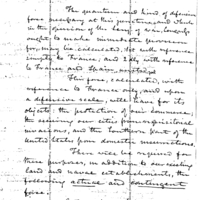 The quantum and kind of defensive
force necessary at this juncture, and which
in the opinion of the Secy. of War, Congress
ought to make immediate provision
for, may be calculated, 1st with reference
simply to France, and 2dly with reference
to France and Spain,
This force, calculated, with
reference to France only, and upon
a defensive scale, will have for its
objects the protection of our commerce,
the securing our cities from a predatory
invasions, and the Southern part of the
United States from domestic insurrections.
There will be required for
these purposes, in addition to our existing
land and naval establishments, the
following actual and contingent
force.